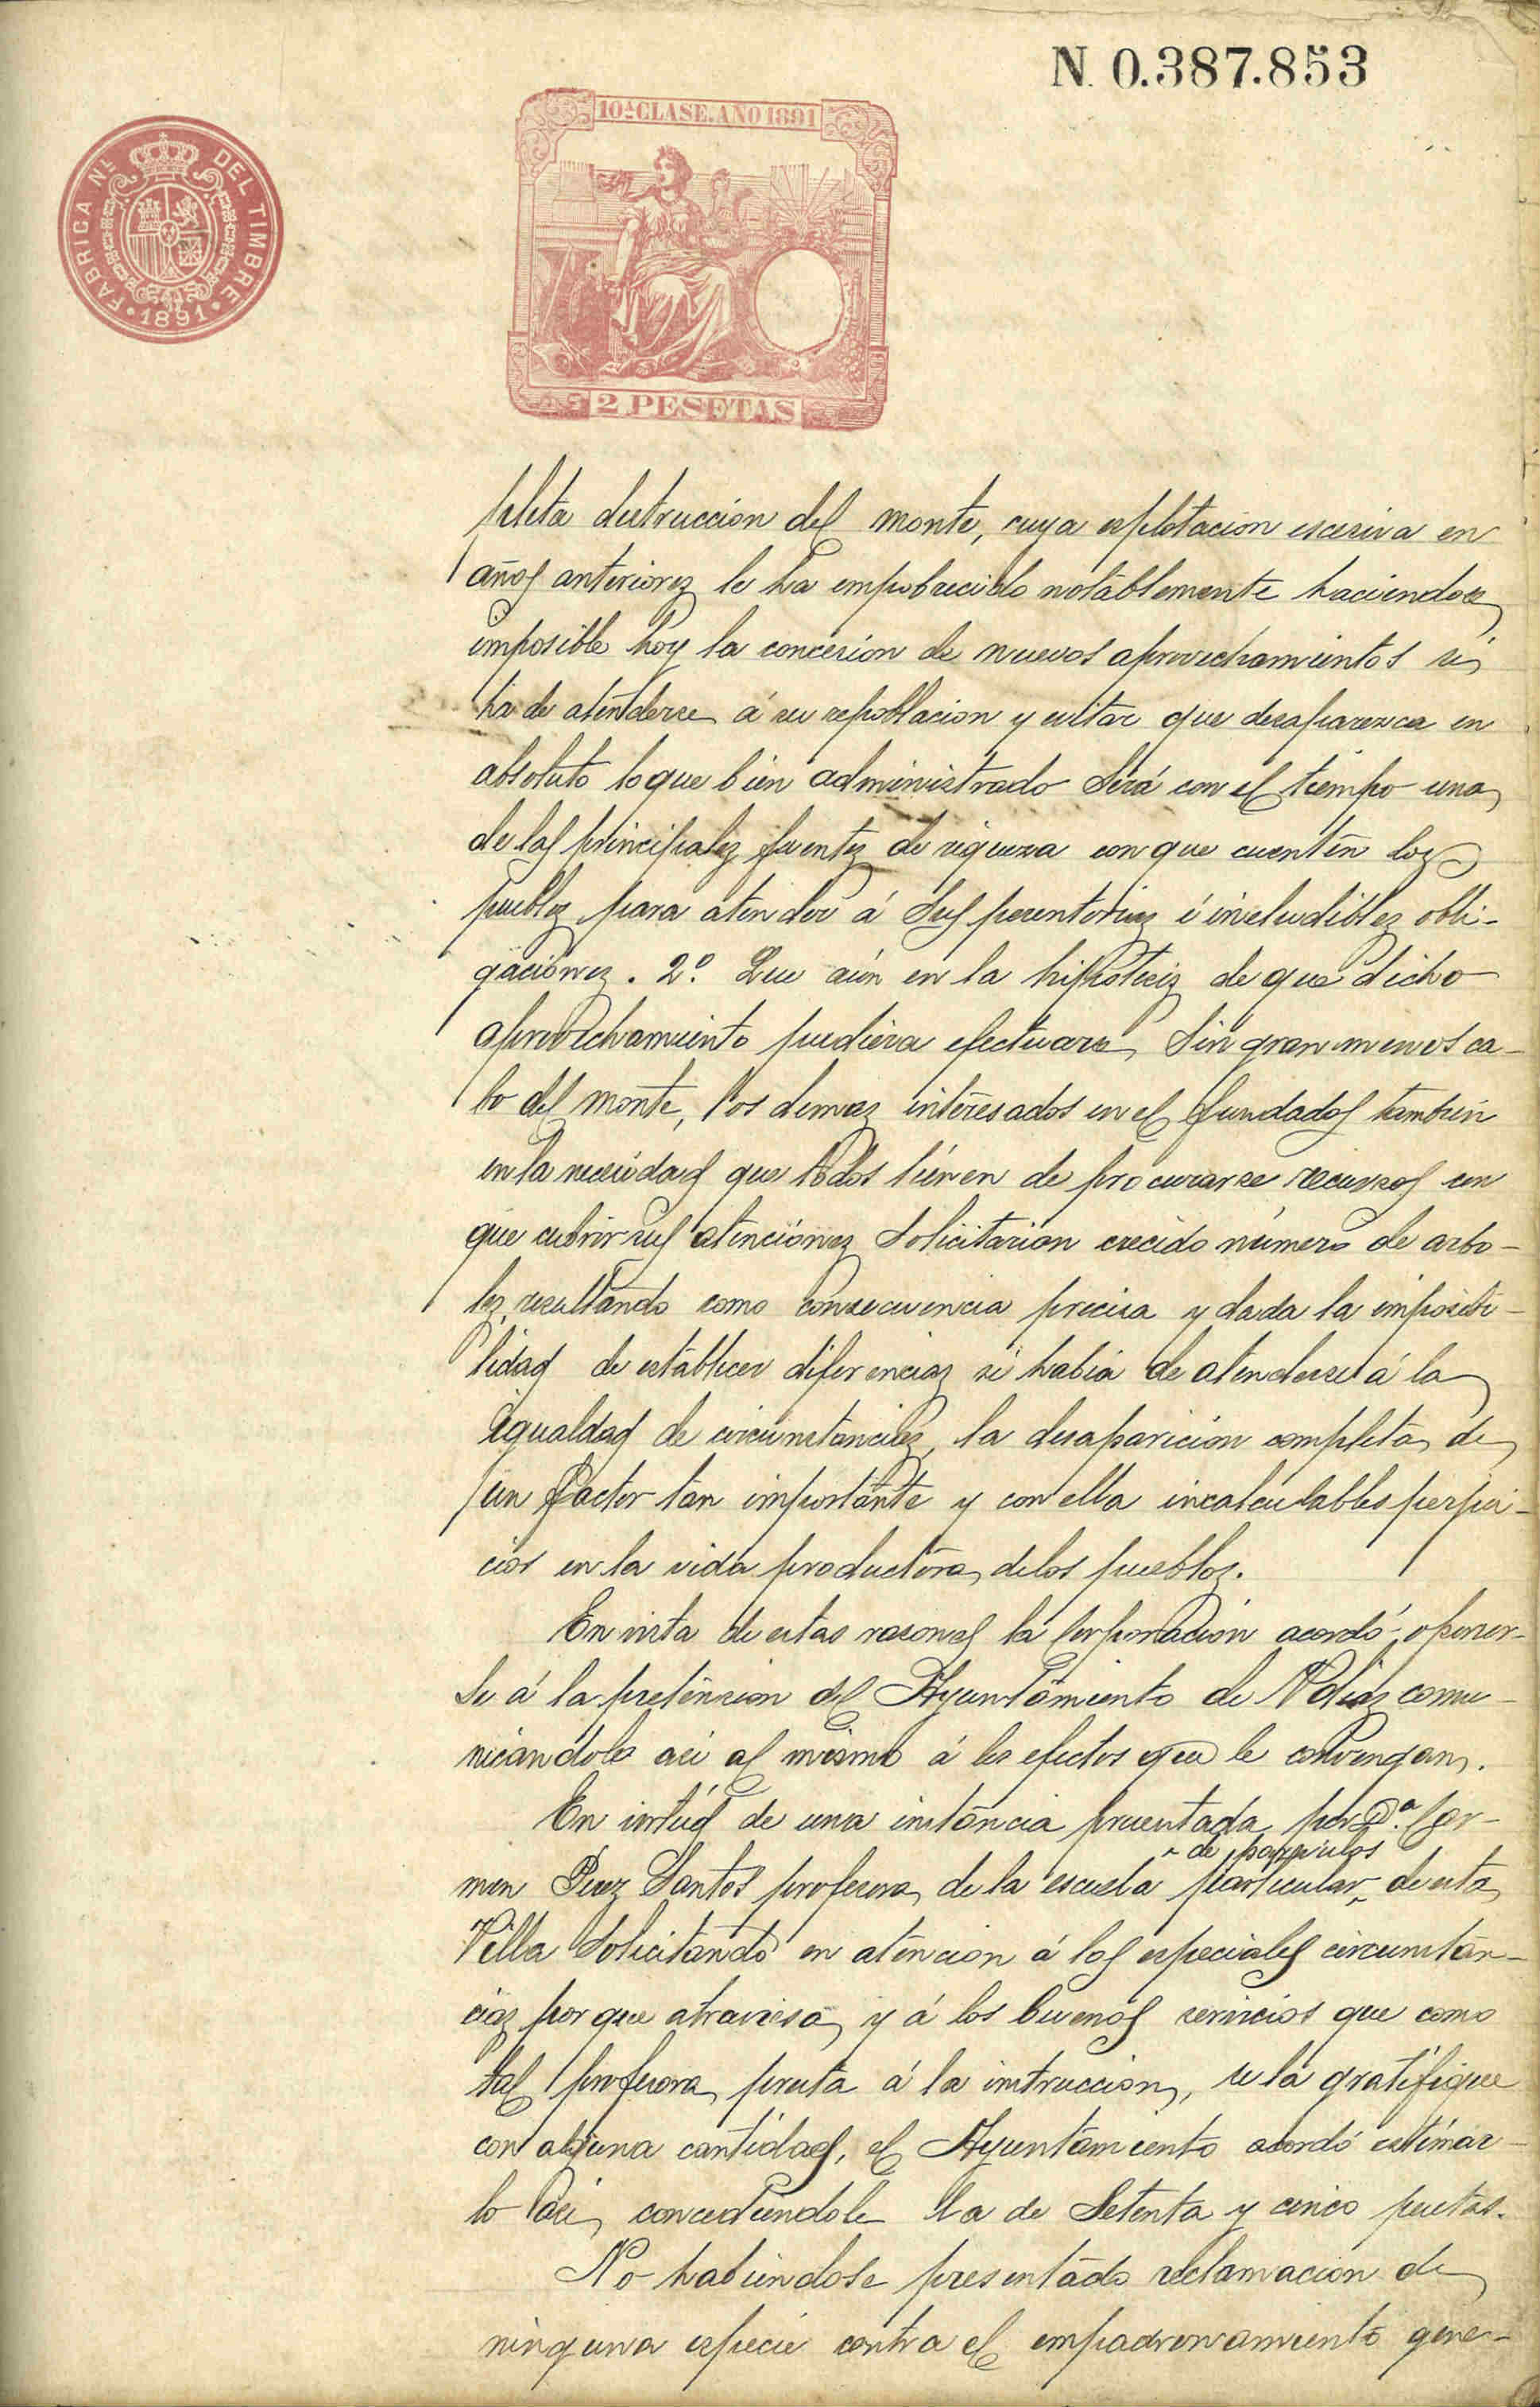 N. 0.387.853
10ª CLASE. AÑO 1891
FABRICA NL DEL TIMBRE
1891
2 PESETAS
pleta destruccion del monte, cuya esplotacion escesiva en
años anteriores le ha empobrecido notablemente haciendose
imposible hoy la concesion de nuevos aprovechamientos si
ha de atenderse á su repoblacion y evitar que desaparezca en
absoluto lo que bien administrado será con el tiempo una
de las principales fuentes de riqueza con que cuenten los
pueblos para atender á sus perentorias é ineludibles obli-
gaciones. 2º. Que aún en la hipotesis de que dicho
aprovechamiento pudiera efectuarse sin gran menosca-
bo del monte, los demas interesados en el fundados tambien
en la necesidad que todos tienen de procurarse recursos con
que cubrir sus atenciones solicitarian crecido número de arbo-
les, resultando como consecuencia precisa y dada la imposibi-
lidad de establecer diferencias si habia de atenderse á la
igualdad de circunstancias, la desaparicion completa de
un factor tan importante y con ella incalculables perjui-
cios en la vida productora de los pueblos.
En vista de estas razones la Corporación acordó oponer-
se á la pretension del Ayuntamiento de comu-
nicandole asi al mismo á los efectos que le convengan.
En virtud de una instancia presentada por Dª. Car-
men Perez Santos profesora de la escuela particular de parvulos de esta
Villa solicitando en atencion á las especiales circunstan-
cias por que atraviesa y á los buenos servicios que como
tal profesora presta á la instruccion, se la gratifique
con alguna cantidad, el Ayuntamiento acordó estimar-
lo asi, concediendole la de setenta y cinco pesetas.
No habiendose presentado reclamacion de
ninguna especie contra el empadronamiento gene-